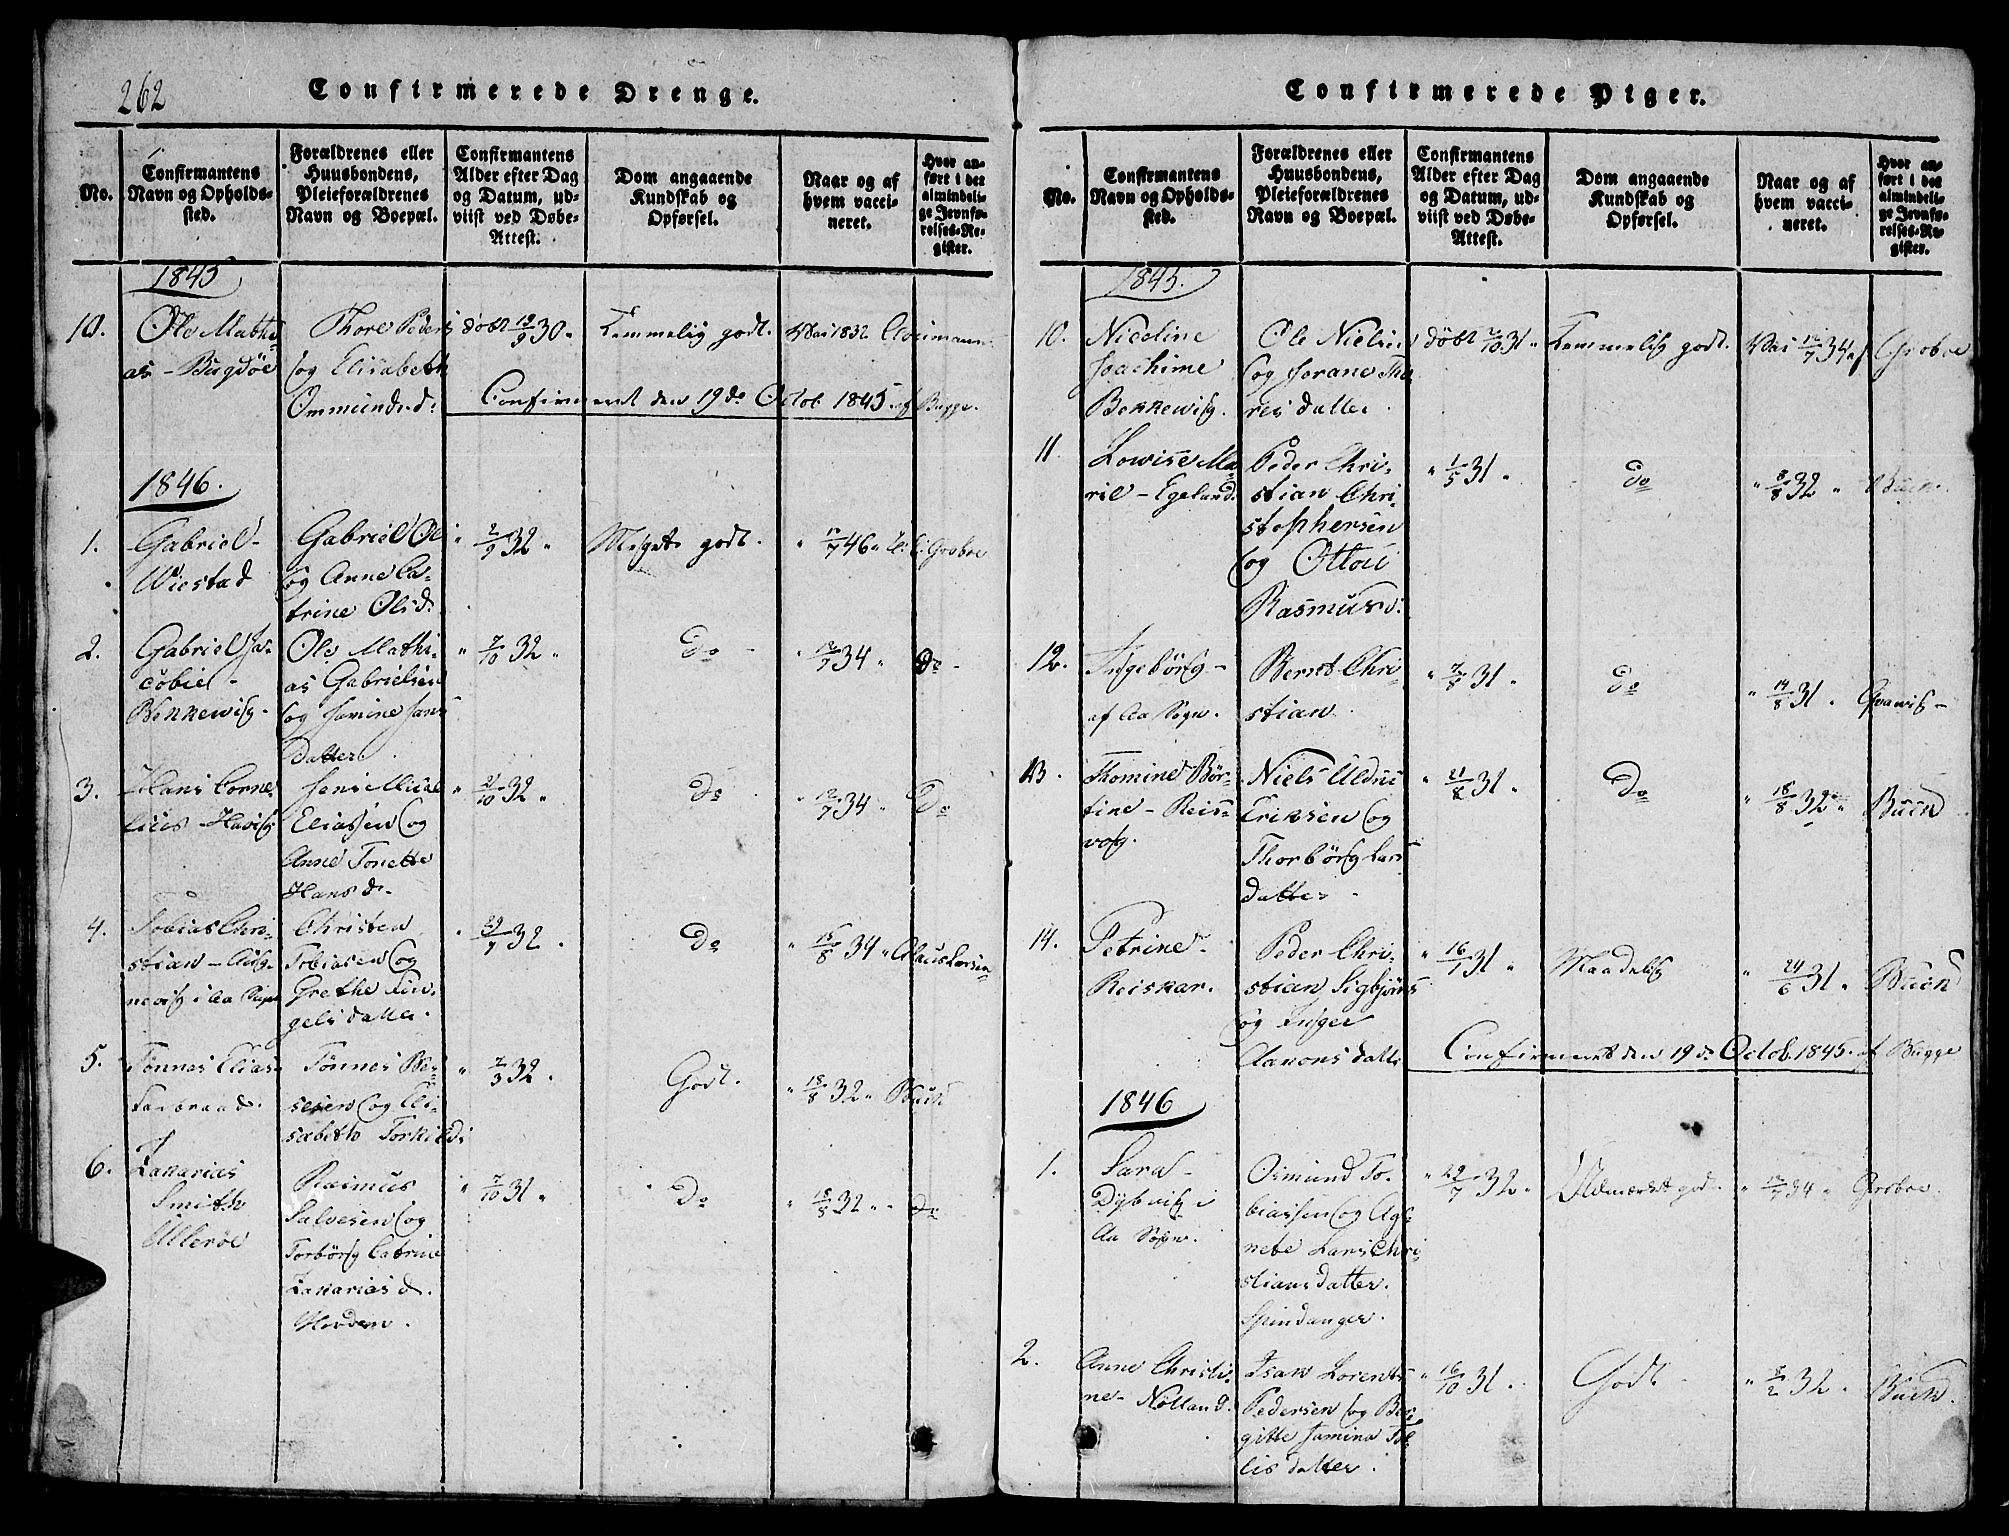 262
Confirmerede Drenge.
No.
Confirmantens
Navn og Opholds-
sted.
Forældrenes eller
Huusbondens,
Pleieforældrenes
Navn og Boepæl.
Confirmantens
Alder efter Dag
og Datum, ud-
viist ved Døbe-
Attest.
Dom angaaende
Kundskab og
Opførsel.
Naar og af
hvem vacci-
neret.
Hvor an-
ført i det
almindeli-
ge Jevnfø-
relses-Re-
gister.
1845
10.
Ole Mathe-
as - Bugdøe
Thore Peders
og Elisabeth
Ommundsd:
døbt 19/9 30 "
Temmelig godt.
Vac: 1832
Confirmeret den 19de Octob. 1845. af Bugge.
1846.
1.
Gabriel -
Wiestad
Gabriel Ol
og Anne Ca-
trine Olsd.
" 2/9 32 "
Meget godt.
" 12/7 46 "
Grobre
2.
Gabriel Ja-
cobie -
Bekkewig -
Ole Mathi-
as Gabrielsen
og Jamine Jans
datter.
" 7/10 32 "
do -
" 12/7 34 "
do -
3.
Hans Corne-
lius - Havig
Jens Michl
Eliassen og
Anne Tonette
Hansd.
" 21/10 32 "
do
" 12/7 34 "
do
4.
Tobias Chri-
stian -
nevig i Aa Sogn
Christen
Tobiasen og
Grethe Fin-
gelsdatter.
" 29/7 32 "
do
" 15/8 34 "
Claus Larsen
5.
Tønnes Elias
Farbraad.
Tønnes Be-
sesen og Eli-
sabeth Torkildsd:
" 2/3 32 "
Godt.
" 18/8 32 "
Buch
6.
Zakarias
Smith
Ullerøe
Rasmus
Salvesen og
Torbørg Catrine
Zakariasd.
" 7/10 31 "
do
" 18/8 32 "
do
Confirmerede Piger.
No.
Confirmantens
Navn og Opholds-
sted.
Forældrenes eller
Huusbondens,
Pleieforældrenes
Navn og Boepæl.
Confirmantens
Alder efter Dag
og Datum, ud-
viist ved Døbe-
Attest.
Dom angaaende
Kundskab og
Opførsel.
Naar og af
hvem vacci-
neret.
Hvor an-
ført i det
almindeli-
ge Jevnfø-
relses-Re-
gister.
1845.
10.
Nicoline
Joachime
Bekkewig.
Ole Nielsen
og Jorane Tho
resdatter.
døbt 2/10 31 "
Temmelig godt.
Vac: 12/7 34 af
Grobre
11.
Lowise Ma-
rie - Egeland.
Peder Chri-
stian Chri-
stophersen
og Ottoli
Rasmusd:
" 1/5 31 "
do
" 8/8 32 "
Buch.
12.
Ingebørg -
af Aa Sogn.
Bernt Chri-
stian.
" 7/8 31 "
do
" 14/8 31 "
13.
Thomine Bør-
tine - Reis-
vog.
Niels Aldus
Eriksen og
Thorbørg Lars
datter -
" 21/8 31 "
do
" 18/8 32 "
Buch
14.
Petrine -
Reiskar.
Peder Chri-
stian Sigbjørns
og Inger
Aaronsdatt:
" 16/1 31 "
Maadelig
" 24/6 31 "
Buch
Confirmeret den 19de Octob. 1845. af Bugge
1846
1.
Sara -
Dybvig i
Aa Sogn.
Osmund To-
biassen og Ag-
nete Lars Chri-
stiansdatter.
Spindanger.
" 29/7 32 "
Udmærket god.
" 12/7 34 "
Grobre.
2.
Anne Christi-
ne - Nölland.
Isak Lorents
Pedersen og Ber-
gitte Jamina Tol-
lisdatter.
" 16/10 31 "
Godt -
" 7/2 32 "
Buch.